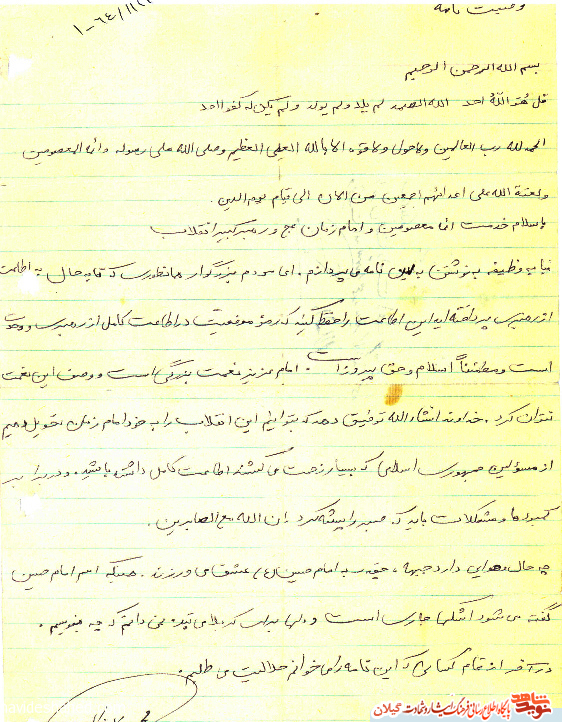 وصیت نامه
بسم الله الرحمن الرحیم
قل هو الله احد الله الصمد لم یلد ولم یولد ولم یکن له کفوا احد
الحمد لله رب العالمین ولا حول ولا قوه الا بالله العلی العظیم وصلی الله علی رسوله وائمه المعصومین
ولعنة الله علی اعدائهم اجمعین من الان الی قیام یوم الدین.
باسلام خدمت ائمه معصومین و امام زمان عج و رهبر کبیر انقلاب
بنا به وظیفه به نوشتن این نامه می پردازم. ای مردم بزرگوار همانطوری که تا به حال به اطاعت
از رهبری پرداخته اید این اطاعت را حفظ کنید که رمز موفقیت در اطاعت کامل از رهبری و وحدت
است و مطمئناً اسلام و حق پیروز است. امام عزیز نعمت بزرگی است و وصف این نعمت
نتوان کرد. خداوند انشاءالله توفیق دهد که بتوانیم این انقلاب را به خود امام زمان تحویل دهیم
از مسؤلین جمهوری اسلامی که بسیار زحمت می کشند اطاعت کامل داشته باشید. و در برابر
کمبودها و مشکلات باید که صبر را پیشه کرد ان الله مع الصابرین.
چه حال و هوایی دارد جبهه، چقدر به امام حسین (ع) عشق می ورزند. همینکه اسم امام حسین
گفته می شود اشکها جاری است و دلها برای کربلا می تپد. نمی دانم که چه بنویسم.
در آخر از تمام کسانی که این نامه را می خوانند حلالیت می طلبم.
نوید شاهد
پایگاه اطلاع رسانی فرهنگ ایثار و شهادت گیلان